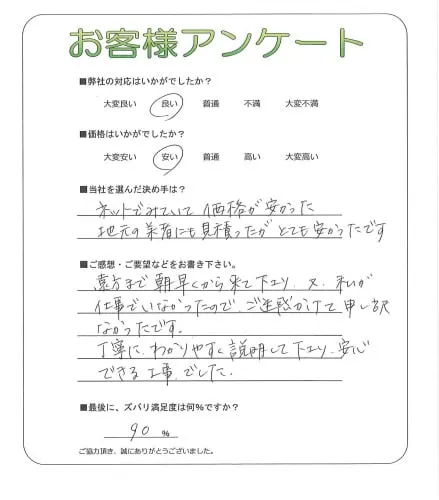 お客様アンケート
■弊社の対応はいかがでしたか？
大変良い 良い 普通 不満 大変不満
■価格はいかがでしたか？
大変安い 安い 普通 高い 大変高い
■当社を選んだ決め手は？
ネットでみていて 価格が安かった
地元の業者にも見積ったが とても安かったです
■ご感想・ご要望などをお書き下さい。
遠方まで 朝早くから来て下さり、又、私が
仕事でいなかったので、ご迷惑かけて 申し訳
なかったです。
丁寧に、わかりやすく 説明して下さり、安心
できる工事、でした。
■最後に、ズバリ満足度は何%ですか？
90 %
ご協力頂き、誠にありがとうございました。